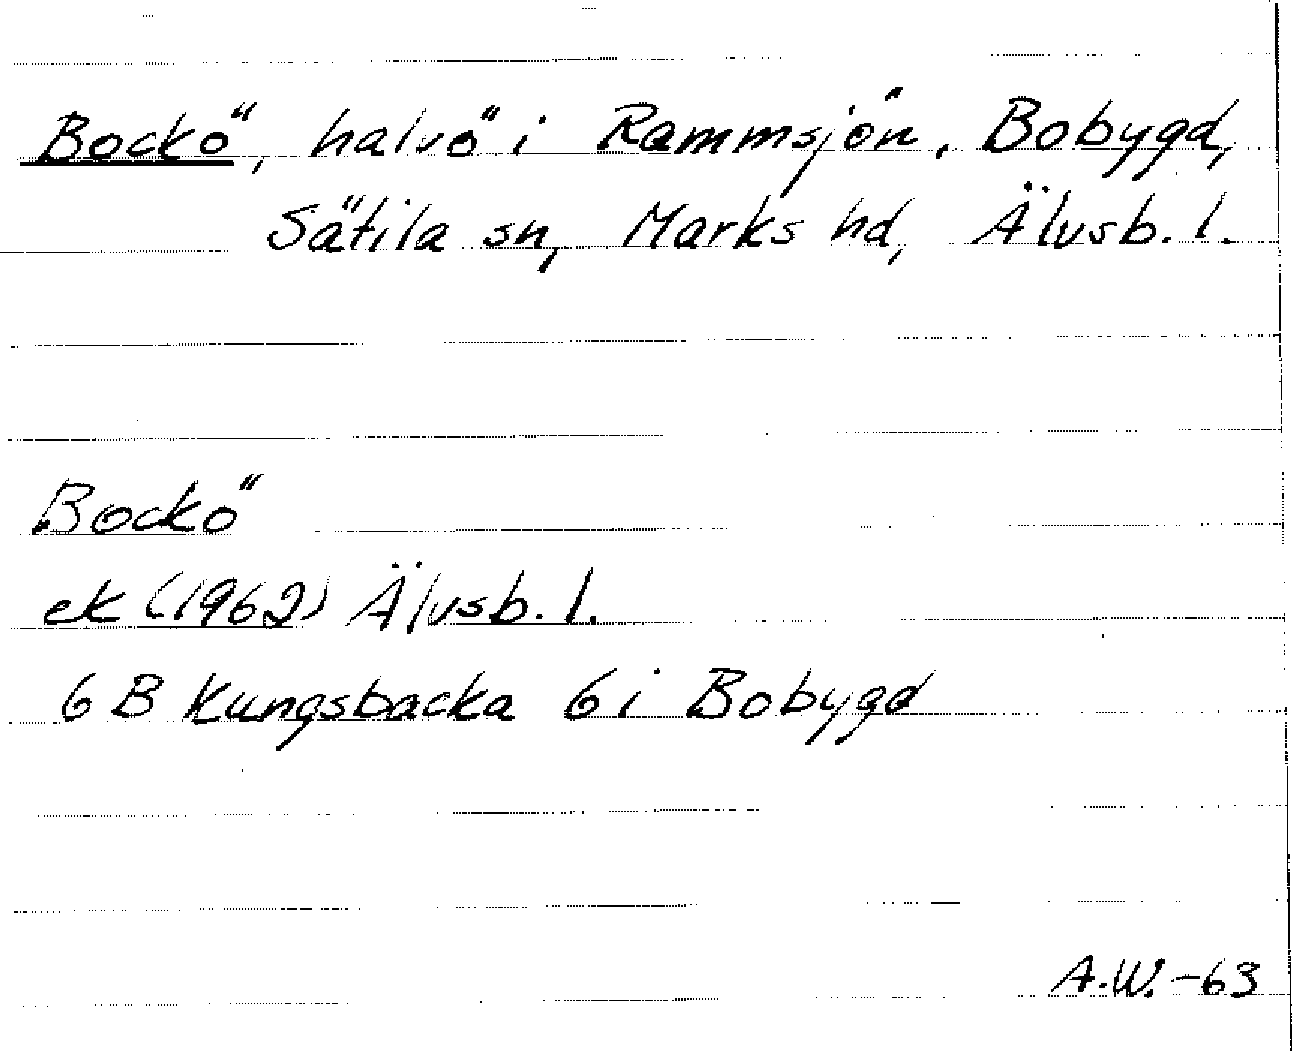 Bockö, halvö i Rammsjön, Bobygd,
Sätila sn, Marks hd, Älvsb. l.
Bockö
ek (1962) Älvsb. l.
6 B Kungsbacka 6 i Bobygd
A.W. -63